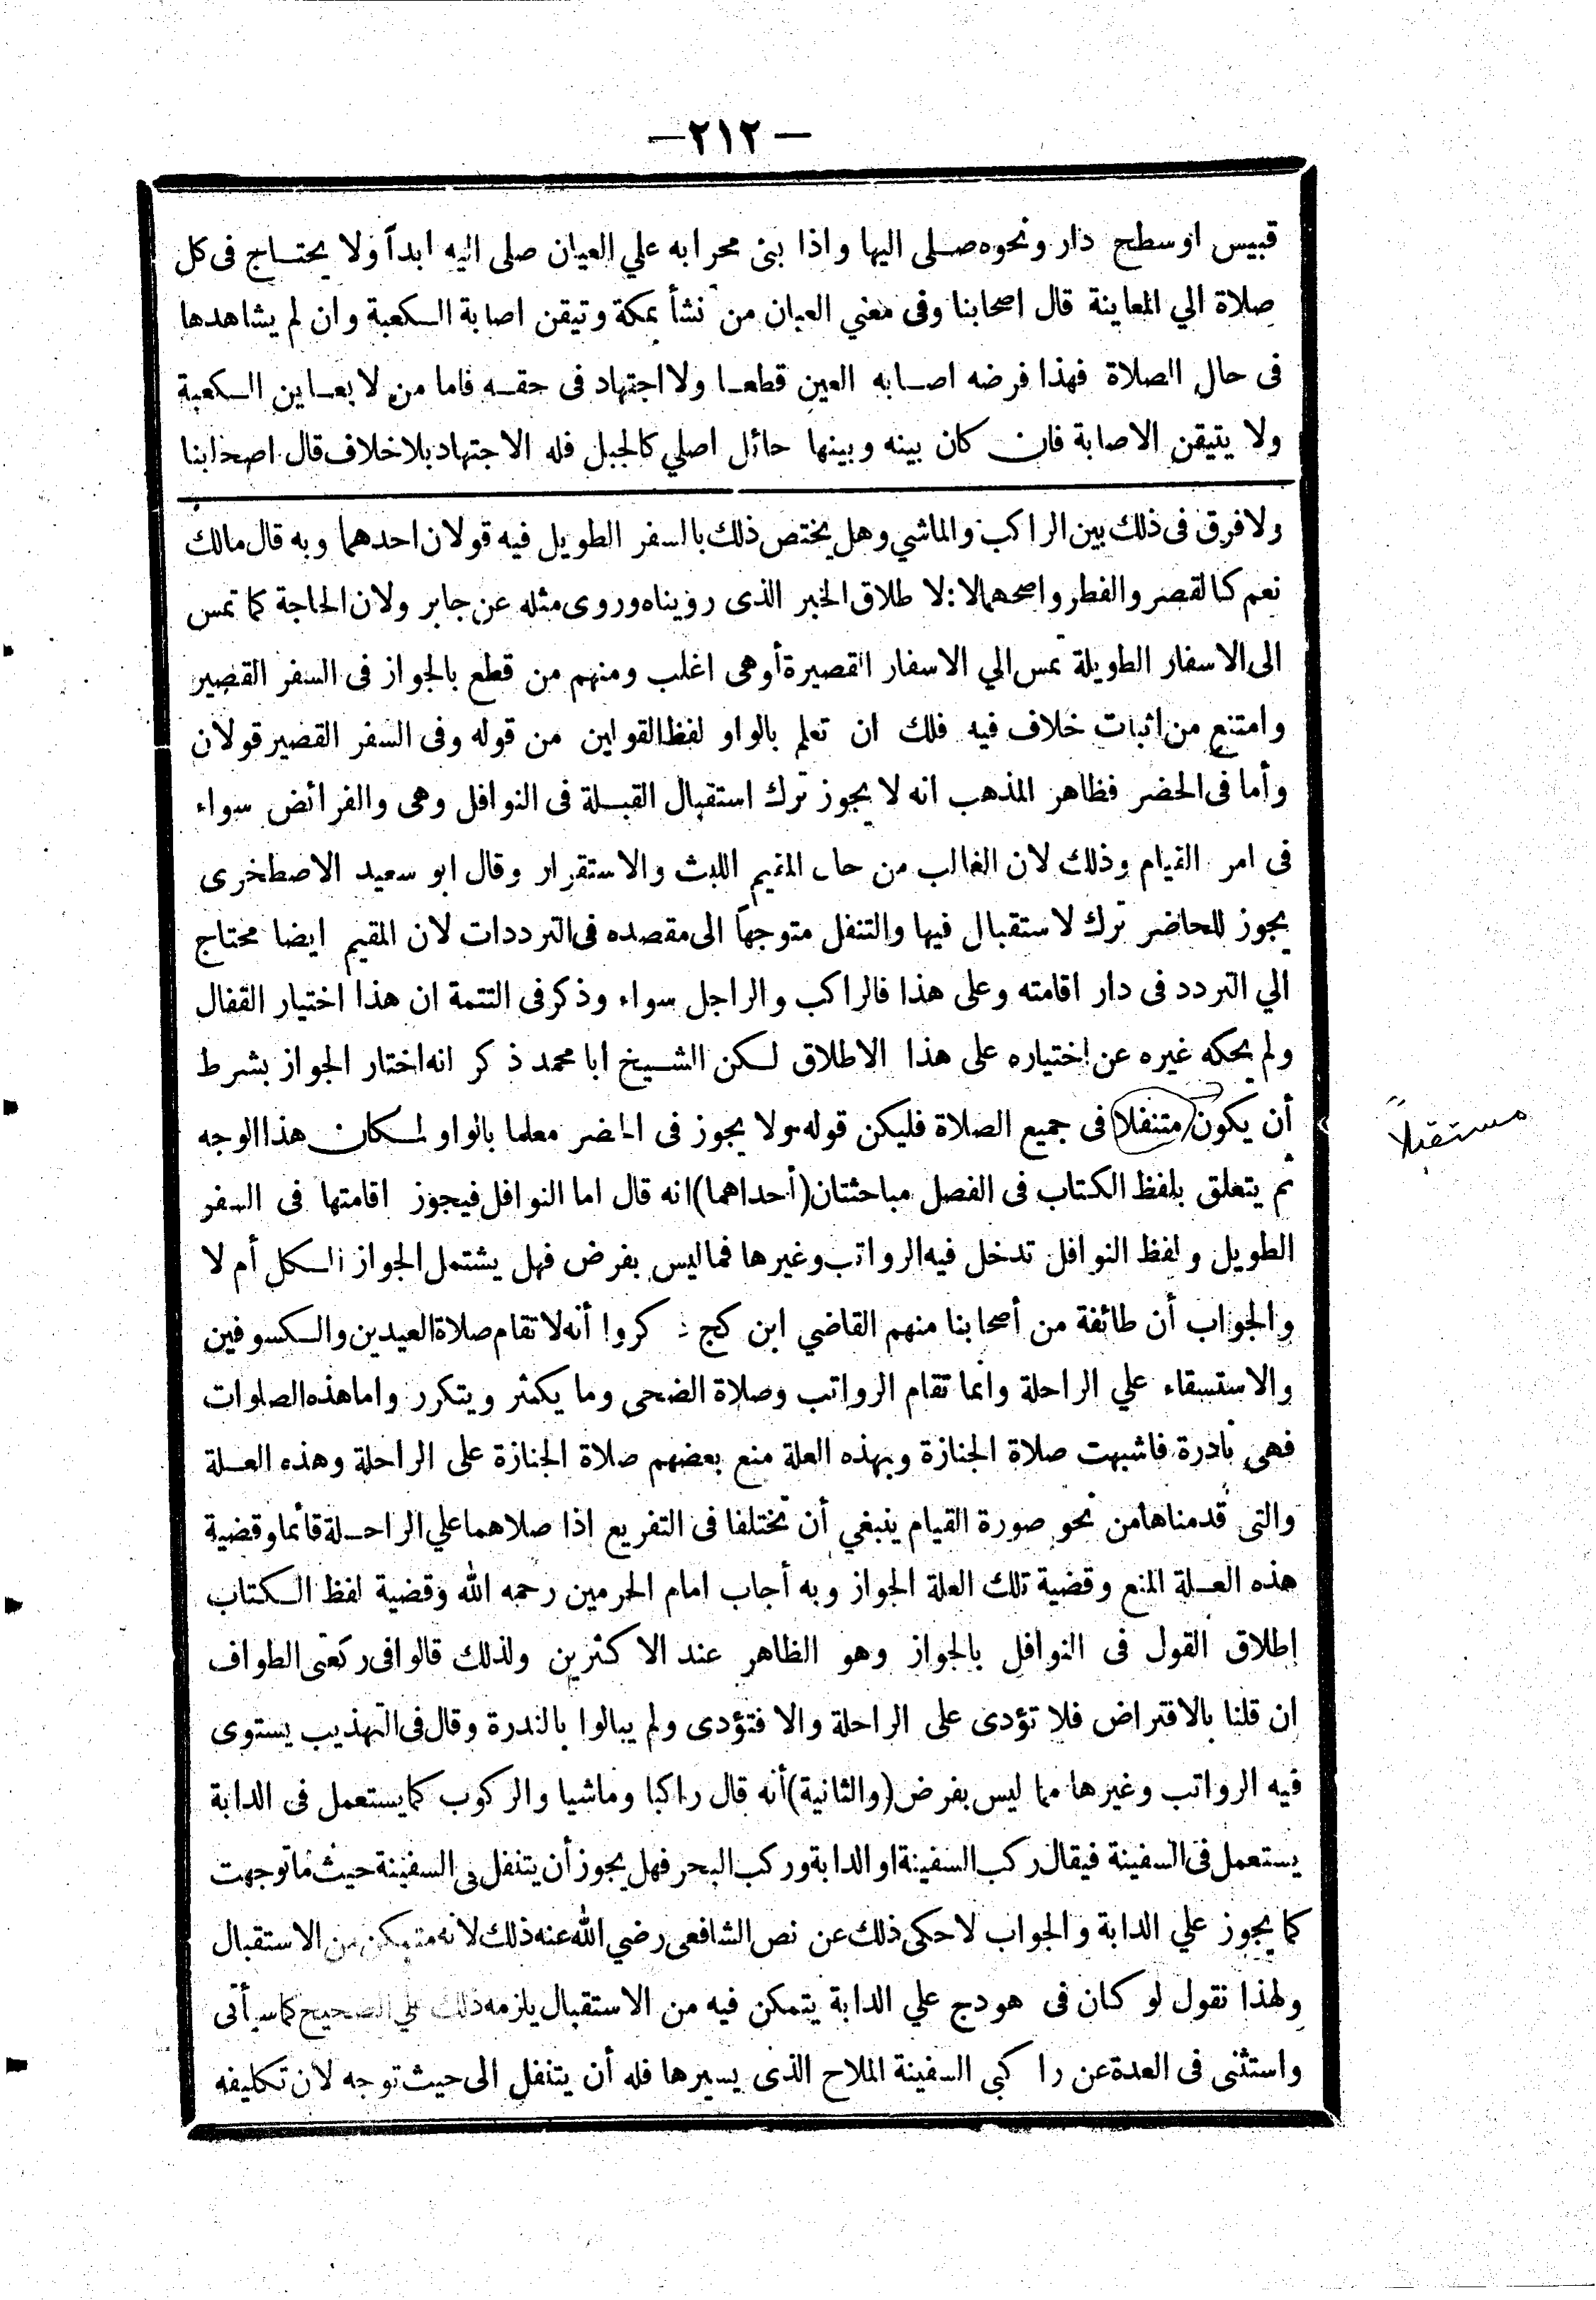 —٢١٢—
قبيس او سطح دار ونحوه صلى اليها واذا بنى محرابه علي العيان صلى اليه ابداً ولا يحتاج فى كل
صلاة الي المعاينة قال اصحابنا وفى معني العيان من نشأ بمكة وتيقن اصابة الكعبة وان لم يشاهدها
فى حال الصلاة فهذا فرضه اصابه العين قطعا ولا اجتهاد فى حقه فاما من لا يعاين الكعبة
ولا يتيقن الاصابة فان كان بينه وبينها حائل اصلي كالجبل فله الاجتهاد بلا خلاف قال اصحابنا
ولا فرق فى ذلك بين الراكب والماشي وهل يختص ذلك بالسفر الطويل فيه قولان احدهما وبه قال مالك
نعم كالقصر والفطر واصحهما لا: لا طلاق الخبر الذى رويناه وروى مثله عن جابر ولان الحاجة كما تمس
الى الاسفار الطويلة تمس الي الاسفار القصيرة أوهى اغلب ومنهم من قطع بالجواز فى السفر القصير
وامتنع من اثبات خلاف فيه فلك ان تعلم بالواو لفظ القولين من قوله وفى السفر القصير قولان
وأما فى الحضر فظاهر المذهب انه لا يجوز ترك استقبال القبلة فى النوافل وهى والفرائض سواء
فى امر القيام وذلك لان الغالب من حال المقيم اللبث والاستقرار وقال ابو سعيد الاصطخرى
يجوز للحاضر ترك لاستقبال فيها والتنفل متوجهاً الى مقصده فى الترددات لان المقيم ايضا محتاج
الي التردد فى دار اقامته وعلى هذا فالراكب والراجل سواء وذكر فى التتمة ان هذا اختيار القفال
ولم يحكه غيره عن اختياره على هذا الاطلاق لكن الشيخ ابا محمد ذكر انه اختار الجواز بشرط
أن يكون متنفلا فى جميع الصلاة فليكن قوله ولا يجوز فى الحضر معلما بالواو لمكان هذا الوجه
مستقبلاً
ثم يتعلق بلفظ الكتاب فى الفصل مباحثتان (أحداهما) انه قال اما النوافل فيجوز اقامتها فى السفر
الطويل ولفظ النوافل تدخل فيه الرواتب وغيرها فما ليس بفرض فهل يشتمل الجواز الكل أم لا
والجواب أن طائفة من أصحابنا منهم القاضي ابن كج ذكروا أنه لا تقام صلاة العيدين والكسوفين
والاستسقاء علي الراحلة وانما تقام الرواتب وصلاة الضحى وما يكثر ويتكرر واما هذه الصلوات
فهى نادرة فاشبهت صلاة الجنازة وبهذه العلة منع بعضهم صلاة الجنازة على الراحلة وهذه العلة
والتى قدمناها من نحو صورة القيام ينبغي أن تختلفا فى التفريع اذا صلاهما علي الراحلة قائما وقضية
هذه العلة المنع وقضية تلك العلة الجواز وبه أجاب امام الحرمين رحمه الله وقضية لفظ الكتاب
إطلاق القول فى النوافل بالجواز وهو الظاهر عند الاكثرين ولذلك قالوا فى ركعتى الطواف
ان قلنا بالافتراض فلا تؤدى على الراحلة والا فتؤدى ولم يبالوا بالندرة وقال فى التهذيب يستوى
فيه الرواتب وغيرها مما ليس بفرض (والثانية) أنه قال راكبا وماشيا والركوب كما يستعمل فى الدابة
يستعمل فى السفينة فيقال ركب السفينة او الدابة وركب البحر فهل يجوز أن يتنفل فى السفينة حيث ما توجهت
كما يجوز علي الدابة والجواب لا حكى ذلك عن نص الشافعى رضي الله عنه ذلك لانه متمكن من الاستقبال
ولهذا نقول لو كان فى هودج علي الدابة يتمكن فيه من الاستقبال يلزمه ذلك علي الصحيح كما سيأتى
واستثنى فى العدة عن راكبى السفينة الملاح الذى يسيرها فله أن يتنفل الى حيث توجه لان تكليفه